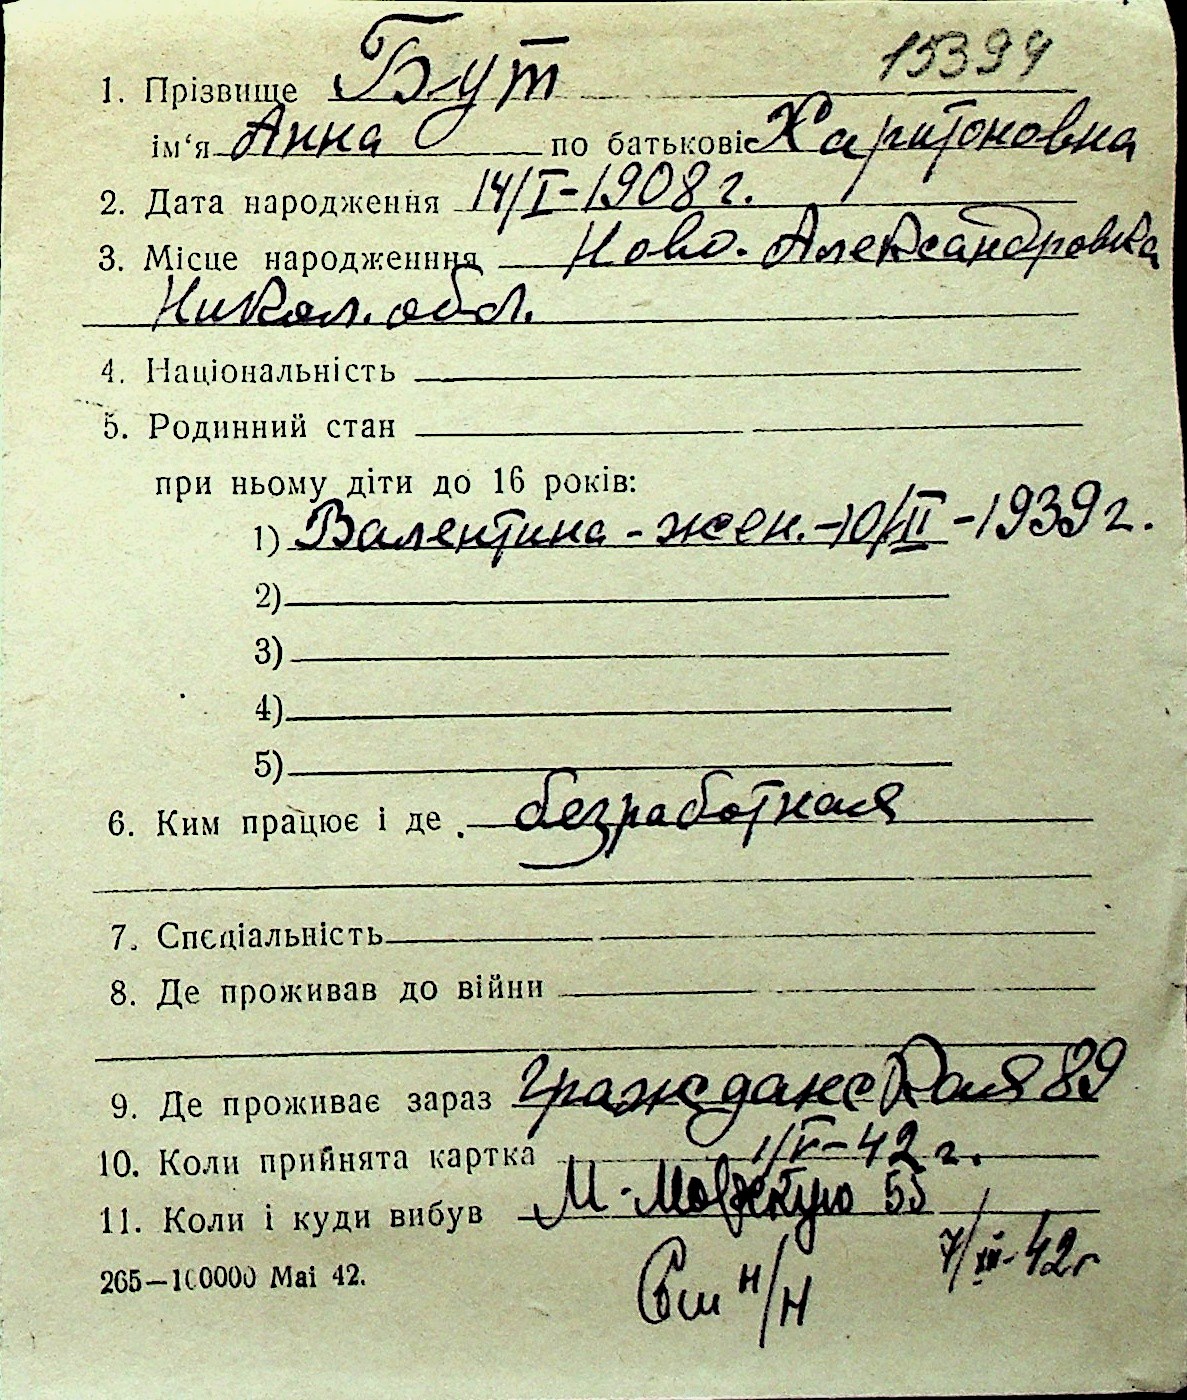 15394
1. Прізвище Бут
ім‘я Анна по батькові Харитоновна
2. Дата народження 14/I-1908 г.
3. Місце народженння Ново-Александровка
Никол. обл.
4. Національність
5. Родинний стан
при ньому діти до 16 років:
1) Валентина - жен. - 10/II - 1939 г.
2)
3)
4)
5)
6. Ким працює і де безработная
7. Спеціальність
8. Де проживав до війни
9. Де проживає зараз Гражданская 89
10. Коли прийнята картка 1/V-42 г.
11. Коли і куди вибув М- 55
7/XII-42 г
н/н
265—100000 Mai 42.